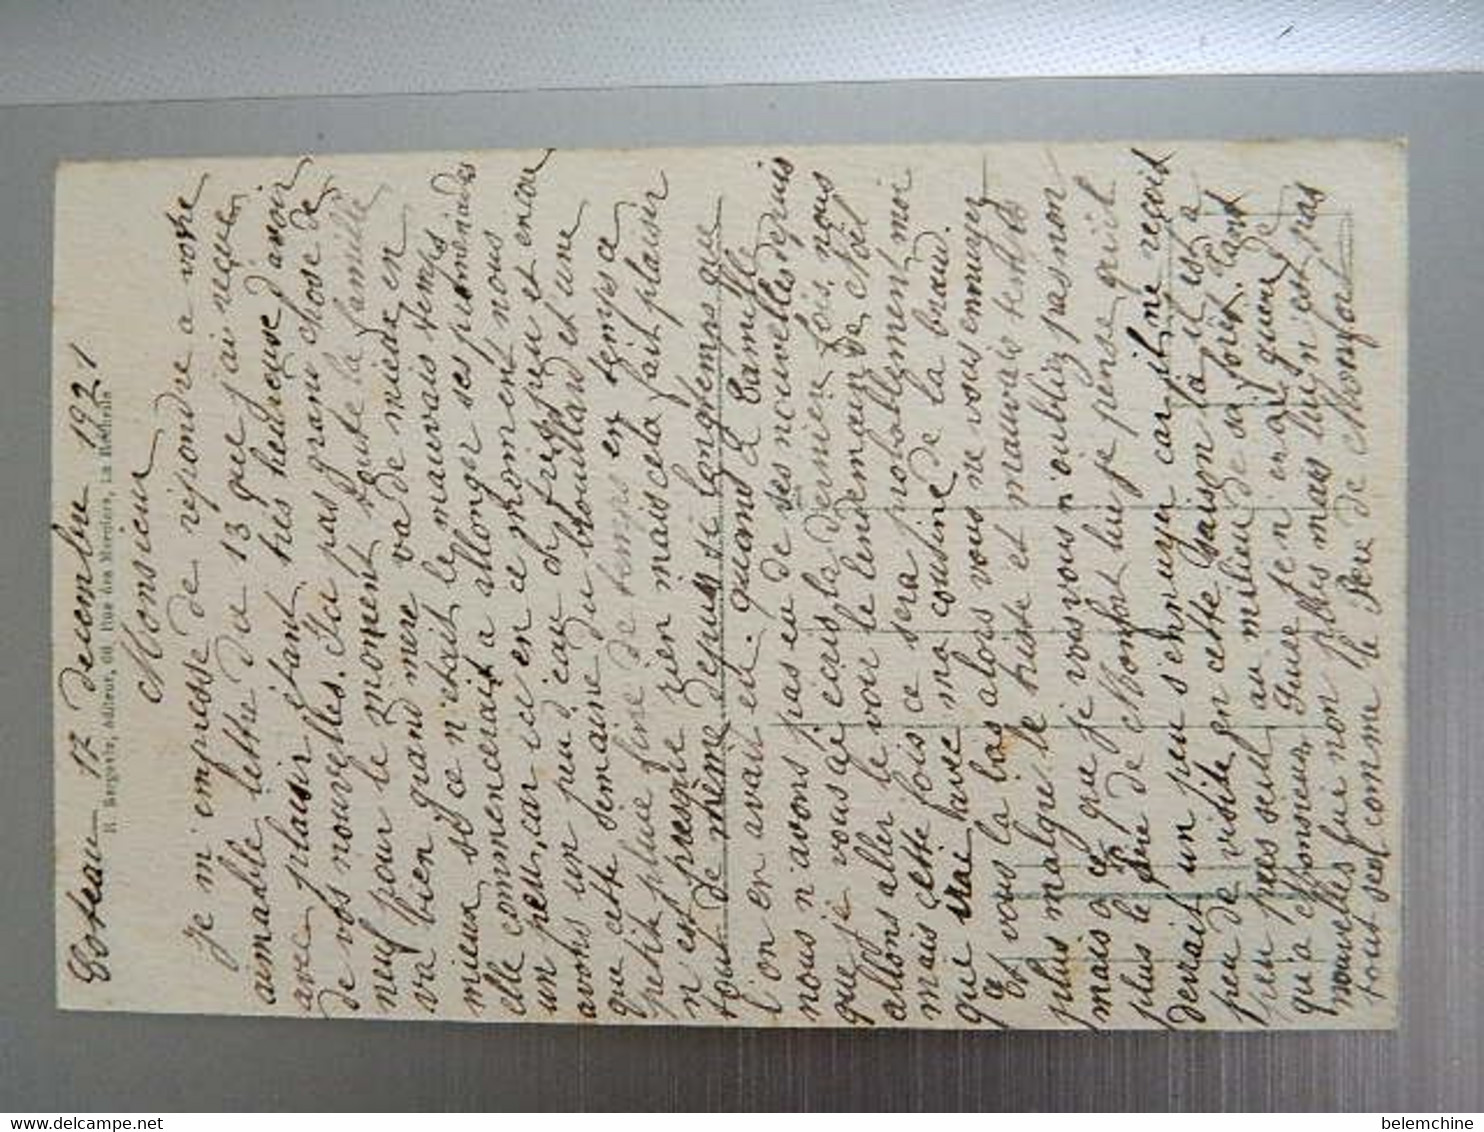 Coteau 17 decembre 1921
R. Bergevin, éditeur, 60, Rue des Merciers, La Rochelle
Monsieur
Je m'empresse de répondre a votre
aimable lettre du 13 que j'ai reçue
avec plaisir étant très heureuse d'avoir
de vos nouvelles. Ici pas grand chose de
neuf pour le moment toute la famille
va bien grand mère va de mieux en
mieux si ce n'était le mauvais temps
elle commencerait a allonger ses promenades
un peu, car ici en ce moment nous
avons un peu d'eau très peu et encore
que cette semaine du brouillard et une
petite pluie fine de temps en temps a
n'est presque rien mais cela fait plaisir
tout de même depuis si longtemps que
l'on en avait eu. quand a Camille
nous n'avons pas eu de ses nouvelles depuis
que je vous ai écris la dernier fois, nous
allons aller le voir le lendemain de Noël
mais cette fois ce sera probablement moi
que irai avec ma cousine de la braud.
Et vous la bas alors vous ne vous ennuyez
plus malgré le triste et mauvais temps
mais a ce que je vois vous n'oubliez pas non
plus le Père de Monfort lui je pense qu'il
derait un peu s'ennuyer car il ne reçoit
peu de visite en cette saison la il est a
peu pres seul au milieu de sa forêt. tant
qu'a Monsieur Guise je n'en ai guere de
nouvelles lui non plus mais lui n'est pas
tout seul comme le Pere de Monfort